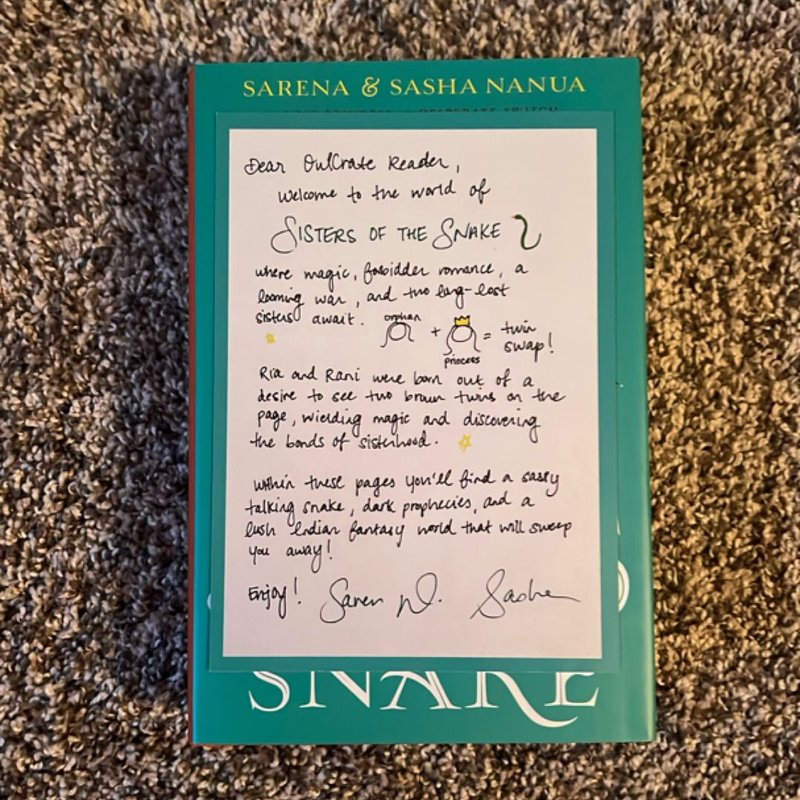 SARENA & SASHA NANUA
Dear OwlCrate Reader,
Welcome to the world of
SISTERS OF THE SNAKE
where magic, forbidden romance, a
looming war, and two long-lost
sisters await.
orphan
+
princess
= twin
swap!
Ria and Rani were born out of a
desire to see two brown twins on the
page, wielding magic and discovering
the bonds of sisterhood.
Within these pages you'll find a sassy
talking snake, dark prophecies, and a
lush Indian fantasy world that will sweep
you away!
Enjoy! Saren N. Sasha
SNAKE